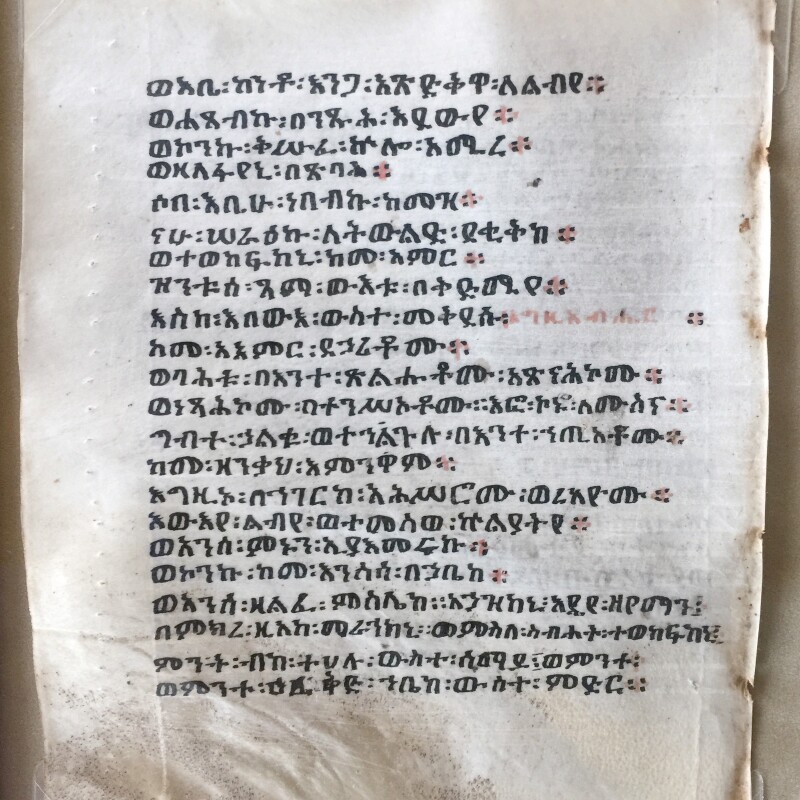 ወእቤ፡ከንቶ፡እንጋ፡አጽድቅዋ፡ለልብየ።
ወሐፀብኩ፡በንጹሕ፡እደውየ።
ወኮንኩ፡ቅሡፈ፡ኵሎ፡አሚረ።
ወዘለፋየኒ፡በጽባሕ።
ሶበ፡እቤሁ፡ነበብኩ፡ከመዝ።
ናሁ፡ሠራዕኩ፡ለትውልደ፡ደቂቅከ።
ወተወከፍከኒ፡ከመ፡አምር።
ዝንቱሰ፡ፃማ፡ውእቱ፡በቅድሜየ።
እስከ፡እበውእ፡ውስተ፡መቅደሱ፡ለእግዚአብሔር።
ከመ፡አእምር፡ደኃሪቶሙ።
ወባሕቱ፡በእንተ፡ጽልሑቶሙ፡አጽናሕኮሙ።
ወነጻሕኮሙ፡በተንሥኦቶሙ።እፎ፡ኮኑ፡ለሙስና።
ግብተ፡ኃልቁ፡ወተኀጕሉ፡በእንተ፡ኀጢአቶሙ።
ከመ፡ዘንቃህ፡እምንዋም።
እግዚኦ፡በሀገርከ፡አሕሥሮሙ፡ወረአዮሙ።
እውእየ፡ልብየ፡ወተመሰወ፡ኵልያትየ።
ወአንሰ፡ምኑን፡ኢያእመርኩ።
ወኮንኩ፡ከመ፡እንስሳ፡በኃቤከ።
ወአንሰ፡ዘልፈ፡ምስሌከ።አኃዝከኒ፡እዴየ፡ዘየማን።
በምክረ፡ዚአከ፡መራኅከኒ።ወምስለ፡ስብሐት፡ተወከፍከኒ።
ምንት፡ብከ፡ተሀሉ፡ውስተ፡ሰማይ።ወምንተ፡
ወምንተ፡ኀቤከ፡ውስተ፡ምድር።